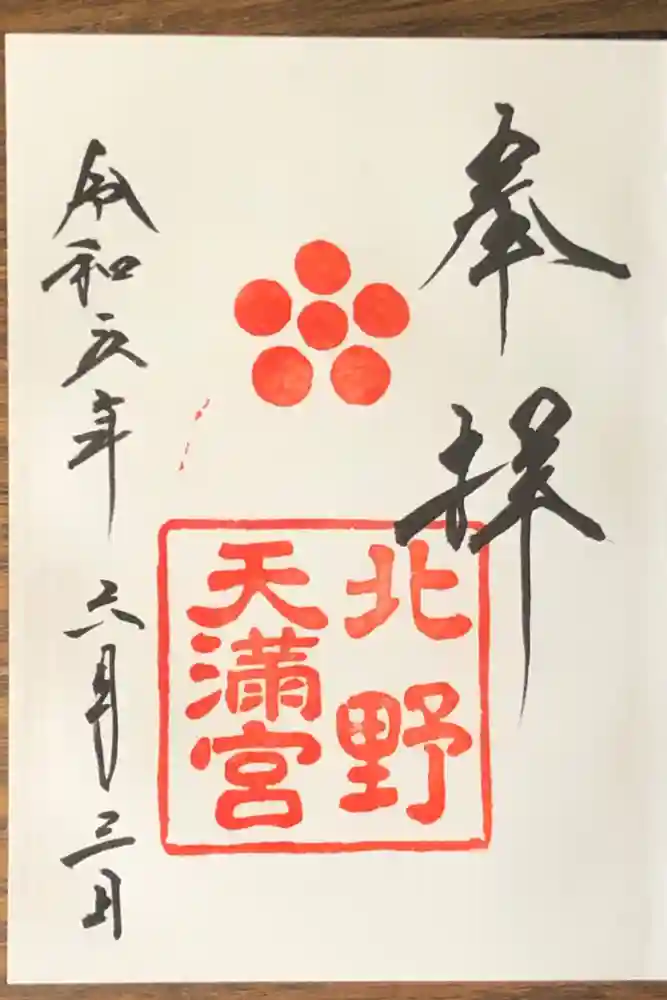 奉拝
北野
天満宮
令和六年六月三日